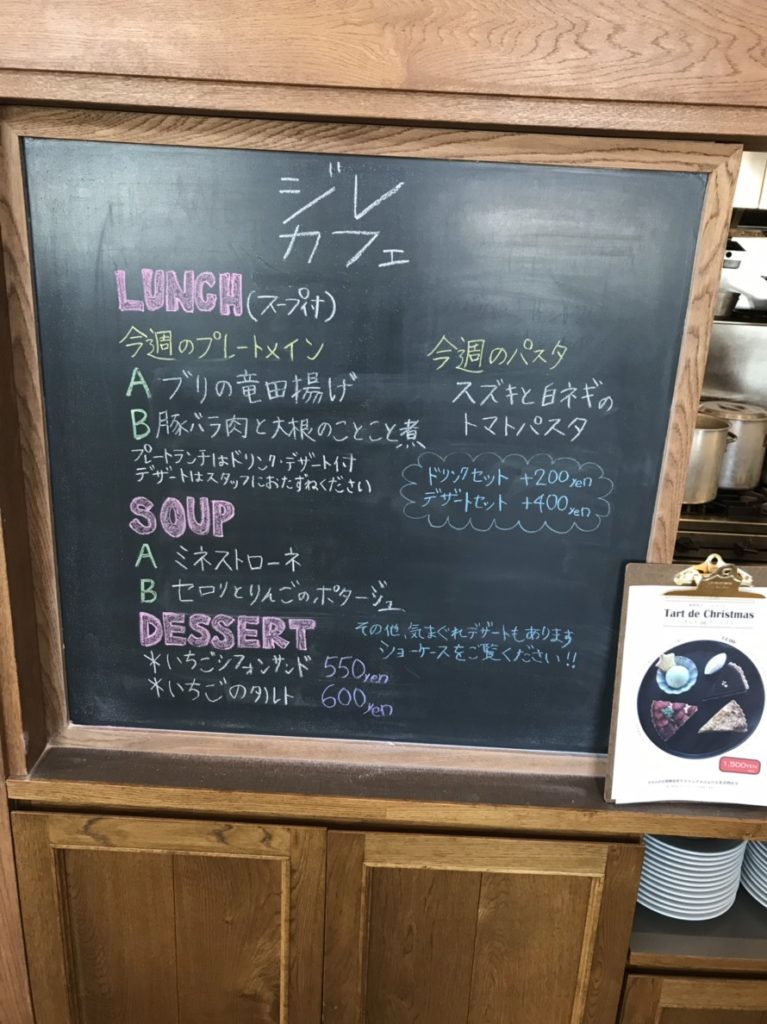 ジレ
カフェ
LUNCH (スープ付)
今週のプレートメイン
A ブリの竜田揚げ
B 豚バラ肉と大根のことこと煮
プレートランチはドリンク・デザート付
デザートはスタッフにおたずねください
今週のパスタ
スズキと白ネギの
トマトパスタ
ドリンクセット +200yen
デザートセット +400yen
SOUP
A ミネストローネ
B セロリとりんごのポタージュ
DESSERT
*いちごシフォンサンド 550yen
*いちごのタルト 600yen
その他、気まぐれデザートもあります
ショーケースをご覧ください!!
Tart de Christmas
1,500YEN